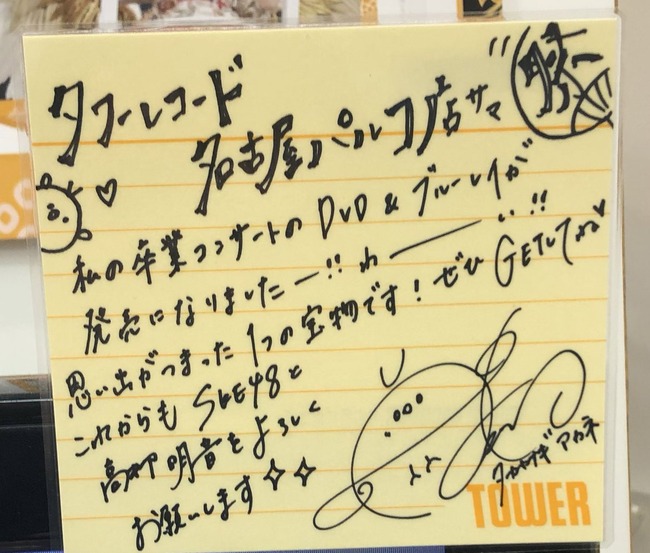 タワーレコード
名古屋パルコ店サマ
私の卒業コンサートのDVD&ブルーレイが
発売になりましたー!!わー!!
思い出がつまった1つの宝物です!ぜひGETしてね♥
これからもSKE48と
高柳明音をよろしく
お願いします✧✧
タカヤナギ アカネ
TOWER